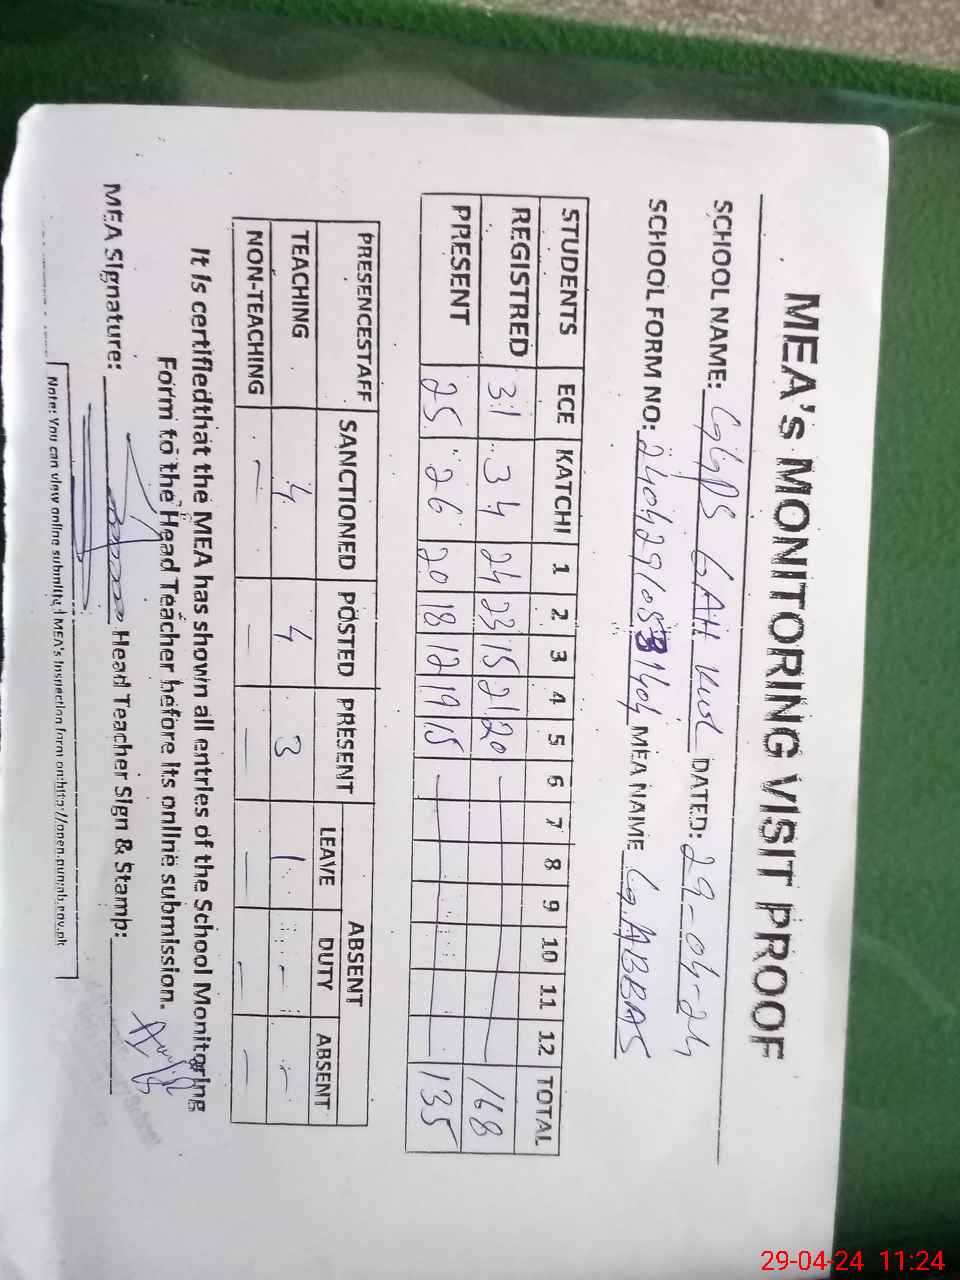 MEA's MONITORING VISIT PROOF
SCHOOL NAME: GGPS GAH DATED: 29-04-24
SCHOOL FORM NO: MEA NAME G.ABBAS
STUDENTS ECE KATCHI 1 2 3 4 5 6 7 8 9 10 11 12 TOTAL
REGISTRED 31 34 24 23 15 21 20 168
PRESENT 25 26 20 18 12 19 15 135
PRESENCESTAFF SANCTIONED POSTED PRESENT ABSENT
LEAVE DUTY ABSENT
TEACHING 4 4 3 1 - -
NON-TEACHING - - - - - -
It is certifiedthat the MEA has shown all entries of the School Monitoring
Form to the Head Teacher before its online submission.
MEA Signature: Head Teacher Sign & Stamp:
Note: You can view online submitted MEA's Inspection form on:http://open.punjab.gov.pk
29-04-24 11:24